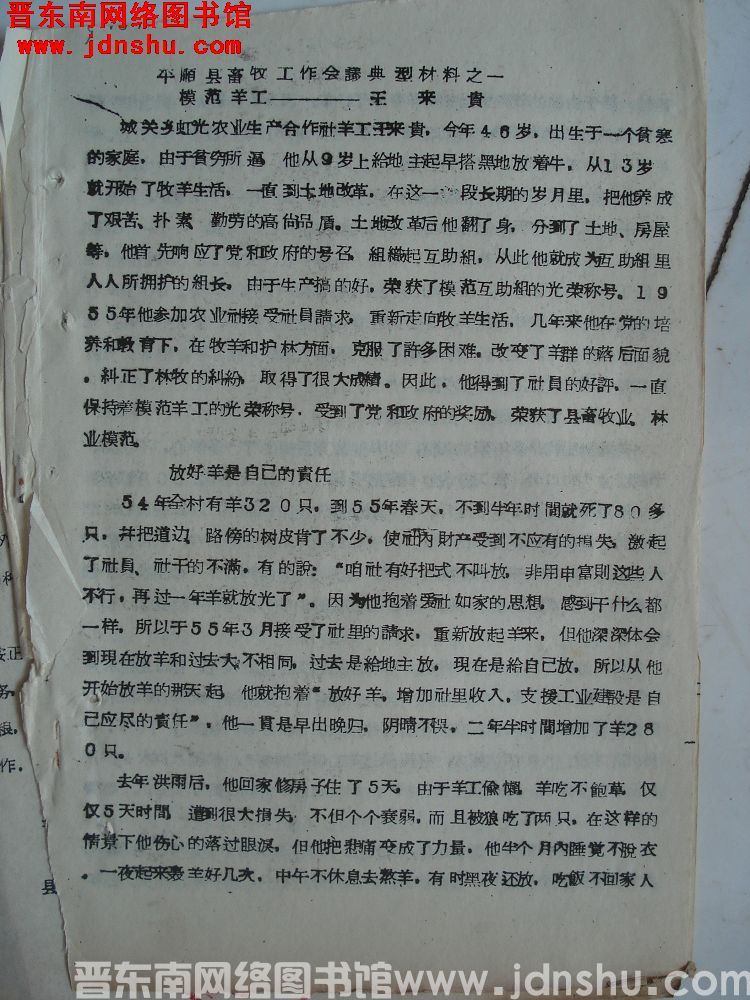 晋东南网络图书馆
www.jdnshu.com
平顺县畜牧工作会議典型材料之一
模范羊工————王来貴
城关乡虹光农业生产合作社羊工王来貴，今年46岁，出生于一个貧寒
的家庭，由于貧穷所逼，他从9岁上給地主起早搭黑地放着牛，从13岁
就开始了牧羊生活，一直到土地改革，在这一段长期的岁月里，把他养成
了艰苦、扑素、勤劳的高尚品質。土地改革后他翻了身，分到了土地、房屋
等，他首先响应了党和政府的号召，組織起互助組，从此他就成为互助組里
人人所拥护的組长，由于生产搞的好，荣获了模范互助組的光荣称号。19
55年他参加农业社接受社員請求，重新走向牧羊生活，几年来他在党的培
养和教育下，在牧羊和护林方面，克服了許多困难，改变了羊群的落后面貌
，糾正了林牧的糾紛，取得了很大成績。因此，他得到了社員的好評，一直
保持着模范羊工的光荣称号，受到了党和政府的奖励，荣获了县畜牧业、林
业模范。
放好羊是自已的責任
54年全村有羊320只，到55年春天，不到半年时間就死了80多
只，并把道边、路傍的树皮肯了不少，使社內財产受到不应有的损失，激起
了社員、社干的不满，有的說：“咱社有好把式不叫放，非用申富則这些人
不行，再过一年羊就放光了”。因为他抱着爱社如家的思想，感到干什么都
一样，所以于55年3月接受了社里的請求，重新放起羊来，但他深深体会
到現在放羊和过去大不相同，过去是給地主放，現在是給自已放，所以从他
开始放羊的那天起，他就抱着“放好羊，增加社里收入，支援工业建設是自
已应尽的責任”，他一貫是早出晚归，阴晴不误，二年半时間增加了羊28
0只。
去年洪雨后，他回家修房子住了5天，由于羊工偷懒，羊吃不飽草，仅
仅5天时間，遭到很大損失，不但个个衰弱，而且被狼吃了两只，在这样的
情景下他伤心的落过眼泪，但他把悲痛变成了力量，他半个月內睡觉不脫衣
，一夜起来轰羊好几次，中午不休息去熬羊，有时黑夜还放，吃飯不回家人
晋东南网络图书馆www.jdnshu.com